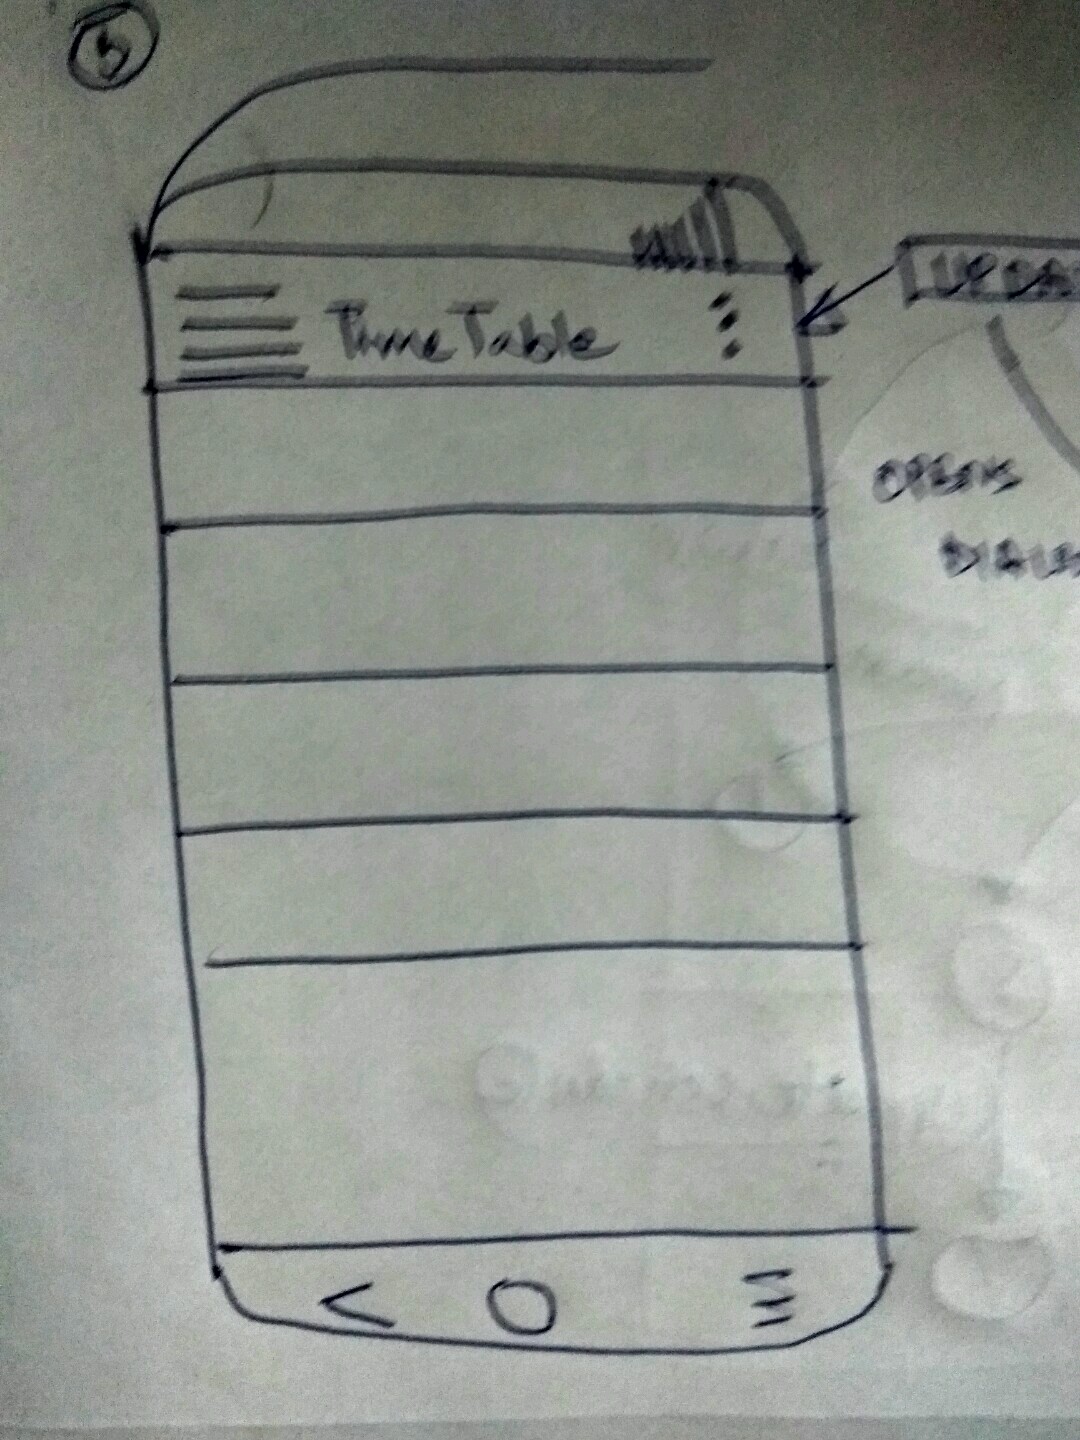 5
Time Table
UPDA
OPENS
DIALO